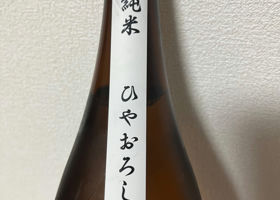 純米 ひやおろし